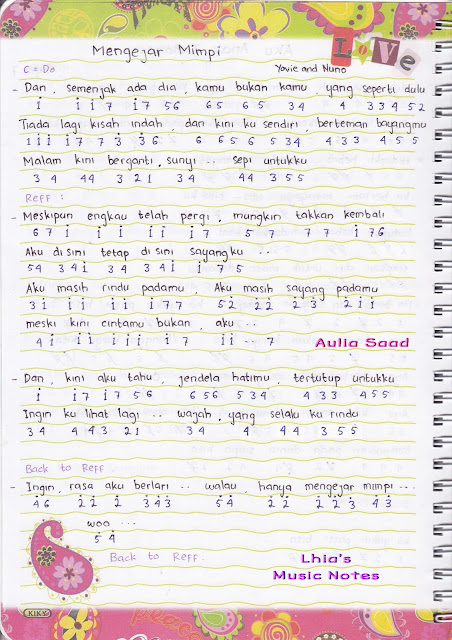 LOVe
Mengejar Mimpi
C = Do
Yovie and Nuno
- Dan, semenjak ada dia, kamu bukan kamu, yang seperti dulu
i i i 7 i 7 5 6 6 5 6 5 3 4 4 3 3 4 5 2
Tiada lagi kisah indah, dan kini ku sendiri, berteman bayangmu
i i i i 7 7 3 3 6 6 6 5 6 5 3 4 4 3 3 4 5 5
Malam kini berganti, sunyi .. sepi untukku
3 4 4 4 3 2 1 3 4 4 4 3 5 5
Reff :
- Meskipun engkau telah pergi, mungkin takkan kembali
6 7 i i i i i i 7 5 7 7 7 i 7 6
Aku disini tetap disini sayangku ..
5 4 3 4 i 3 4 3 4 i i 7 5
Aku masih rindu padamu, Aku masih sayang padamu
3 i i i i i i 7 7 5 2 2 2 2 3 2 i i
meski kini cintamu bukan, aku ..
4 i i i i i i i 7 i i .. 7
Aulia Saad
- Dan, kini aku tahu, jendela hatimu, tertutup untukku
i i 7 i 7 5 6 6 5 6 5 3 4 4 3 3 4 5 5
Ingin ku lihat lagi .. wajah, yang selalu ku rindu
3 4 4 4 3 2 1 3 4 4 4 4 3 5 5
Back to Reff
- Ingin, rasa aku berlari .. walau, hanya mengejar mimpi ...
4 6 2 2 2 3 4 3 5 4 2 2 2 2 3 4 3
woo ...
5 4
Back to Reff.
Lhia's
Music Notes
KIKY